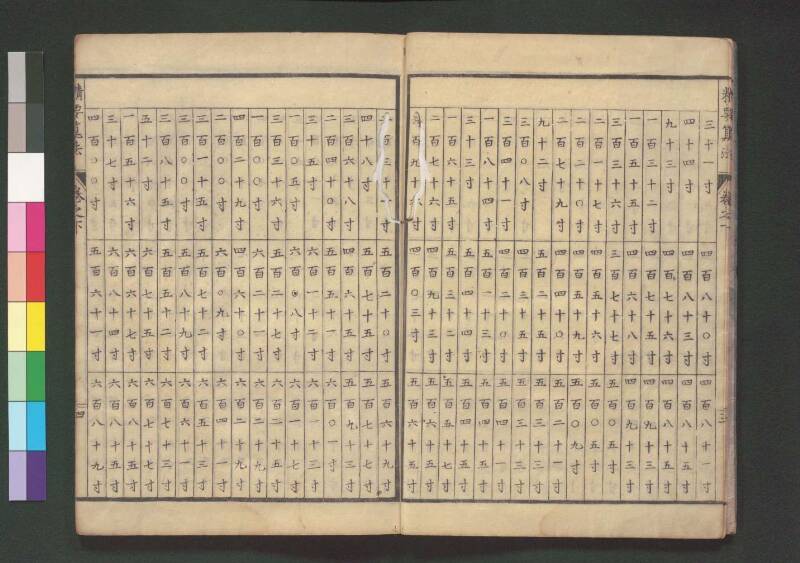 精要算法 卷之下 三
三十一寸 四百八十〇寸 四百八十一寸
四十四寸 四百八十三寸 四百八十五寸
九十三寸 四百七十六寸 四百八十五寸
一百三十二寸 四百七十五寸 四百九十三寸
一百五十五寸 四百六十八寸 四百九十三寸
三百三十六寸 三百七十七寸 五百〇五寸
二百一十七寸 四百五十六寸 五百〇五寸
二百二十〇寸 四百五十九寸 五百〇九寸
二百七十九寸 四百四十〇寸 五百二十一寸
九十二寸 五百二十五寸 五百三十三寸
三百〇八寸 四百三十五寸 五百三十三寸
三百四十一寸 四百二十〇寸 五百四十一寸
一百八十四寸 五百一十三寸 五百四十五寸
三十三寸 五百四十四寸 五百四十五寸
一百六十五寸 五百三十二寸 五百五十七寸
二百七十六寸 四百九十三寸 五百六十五寸
三百九十六寸 四百〇三寸 五百六十五寸
二百三十一寸 五百二十〇寸 五百六十九寸
四十八寸 五百七十五寸 五百七十七寸
三百六十八寸 四百六十五寸 五百九十三寸
二百四十〇寸 五百五十一寸 六百〇一寸
三十五寸 六百一十二寸 六百一十三寸
一百〇五寸 六百〇八寸 六百一十七寸
三百三十六寸 五百二十七寸 六百二十五寸
一百〇〇寸 六百二十一寸 六百二十九寸
四百二十九寸 四百六十〇寸 六百二十九寸
二百〇〇寸 六百〇九寸 六百四十一寸
三百一十五寸 五百七十二寸 六百五十三寸
三百〇〇寸 五百八十九寸 六百六十一寸
三百八十五寸 五百五十二寸 六百七十三寸
五十二寸 六百七十五寸 六百七十七寸
一百五十六寸 六百六十七寸 六百八十五寸
三十七寸 六百八十四寸 六百八十五寸
四百〇〇寸 五百六十一寸 六百八十九寸
精要算法 卷之下 四